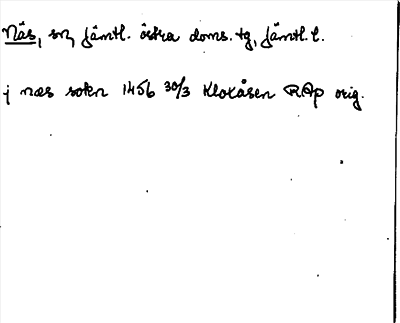 Näs, sn, Jämtl. östra doms. tg, Jämtl. l.
j næs sokn 1456 30/3 Klokåsen RAp orig.